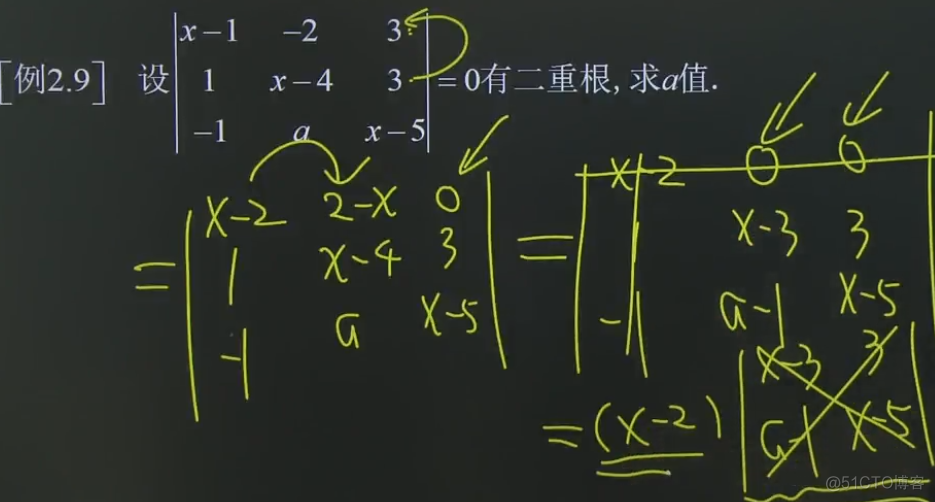 [例2.9] 设 | x-1 -2 3 |
| 1 x-4 3 | =0有二重根, 求a值.
| -1 a x-5 |
= | x-2 2-x 0 |
| 1 x-4 3 |
| -1 a x-5 |
= | x-2 0 0 |
| 1 x-3 3 |
| -1 a-1 x-5 |
= (x-2) | x-3 3 |
| a-1 x-5 |
@51CTO博客